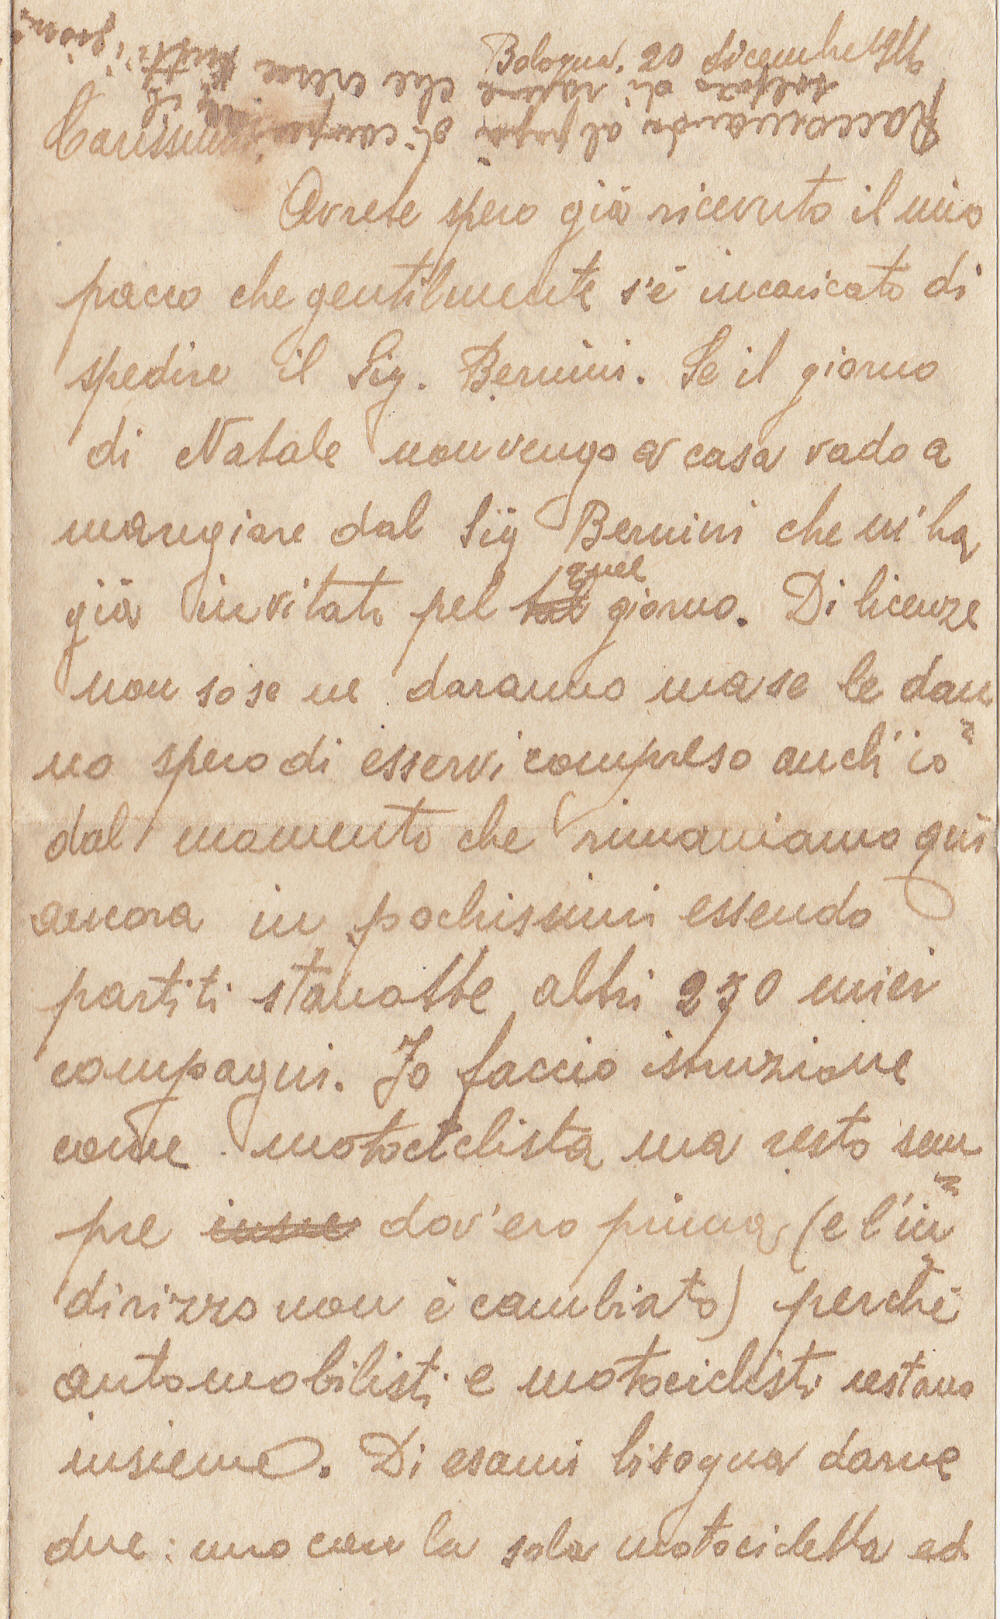 Bologna, 20 dicembre 1916
Raccomando al papà di comperare il
solfato di rame che cresce tutti i giorni
Carissimi
Avrete spero già ricevuto il mio
pacco che gentilmente s'è incaricato di
spedire il Sig. Bernini. Se il giorno
di Natale non vengo a casa vado a
mangiare dal Sig Bernini che m'ha
già invitato pel quel giorno. Di licenze
non so se ne daranno ma se le dan
no spero di esservi compreso anch'io
dal momento che rimaniamo qui
ancora in pochissimi essendo
partiti stanotte altri 250 miei
compagni. Io faccio istruzione
come motociclista ma resto sem
pre dov'ero prima (e l'in
dirizzo non è cambiato) perchè
automobilisti e motociclisti restano
insieme. Di esami bisogna darne
due: uno con la sola motocicletta ed